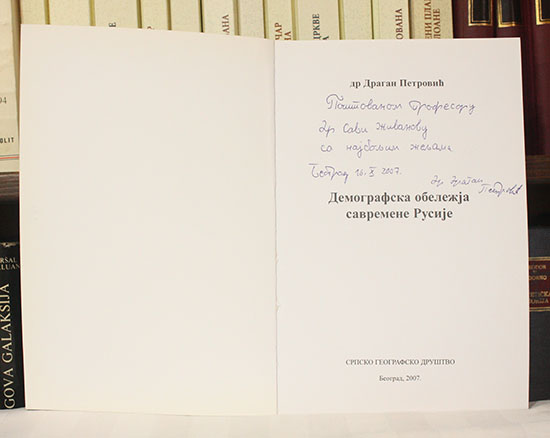 ЧАР
АНА
ДРКВЕ
ОВАНА
ЕНИ ПЛА
ЛОАНЕ
94
OLIT
ARŠAL
ELUAN
GOVA GALAKSIJA
др Драган Петровић
Поштованом професору
др Сави Живанову
са најбољим жељама
Београд 16. X 2007.
др Драган
Петровић
Демографска обележја
савремене Русије
СРПСКО ГЕОГРАФСКО ДРУШТВО
Београд, 2007.